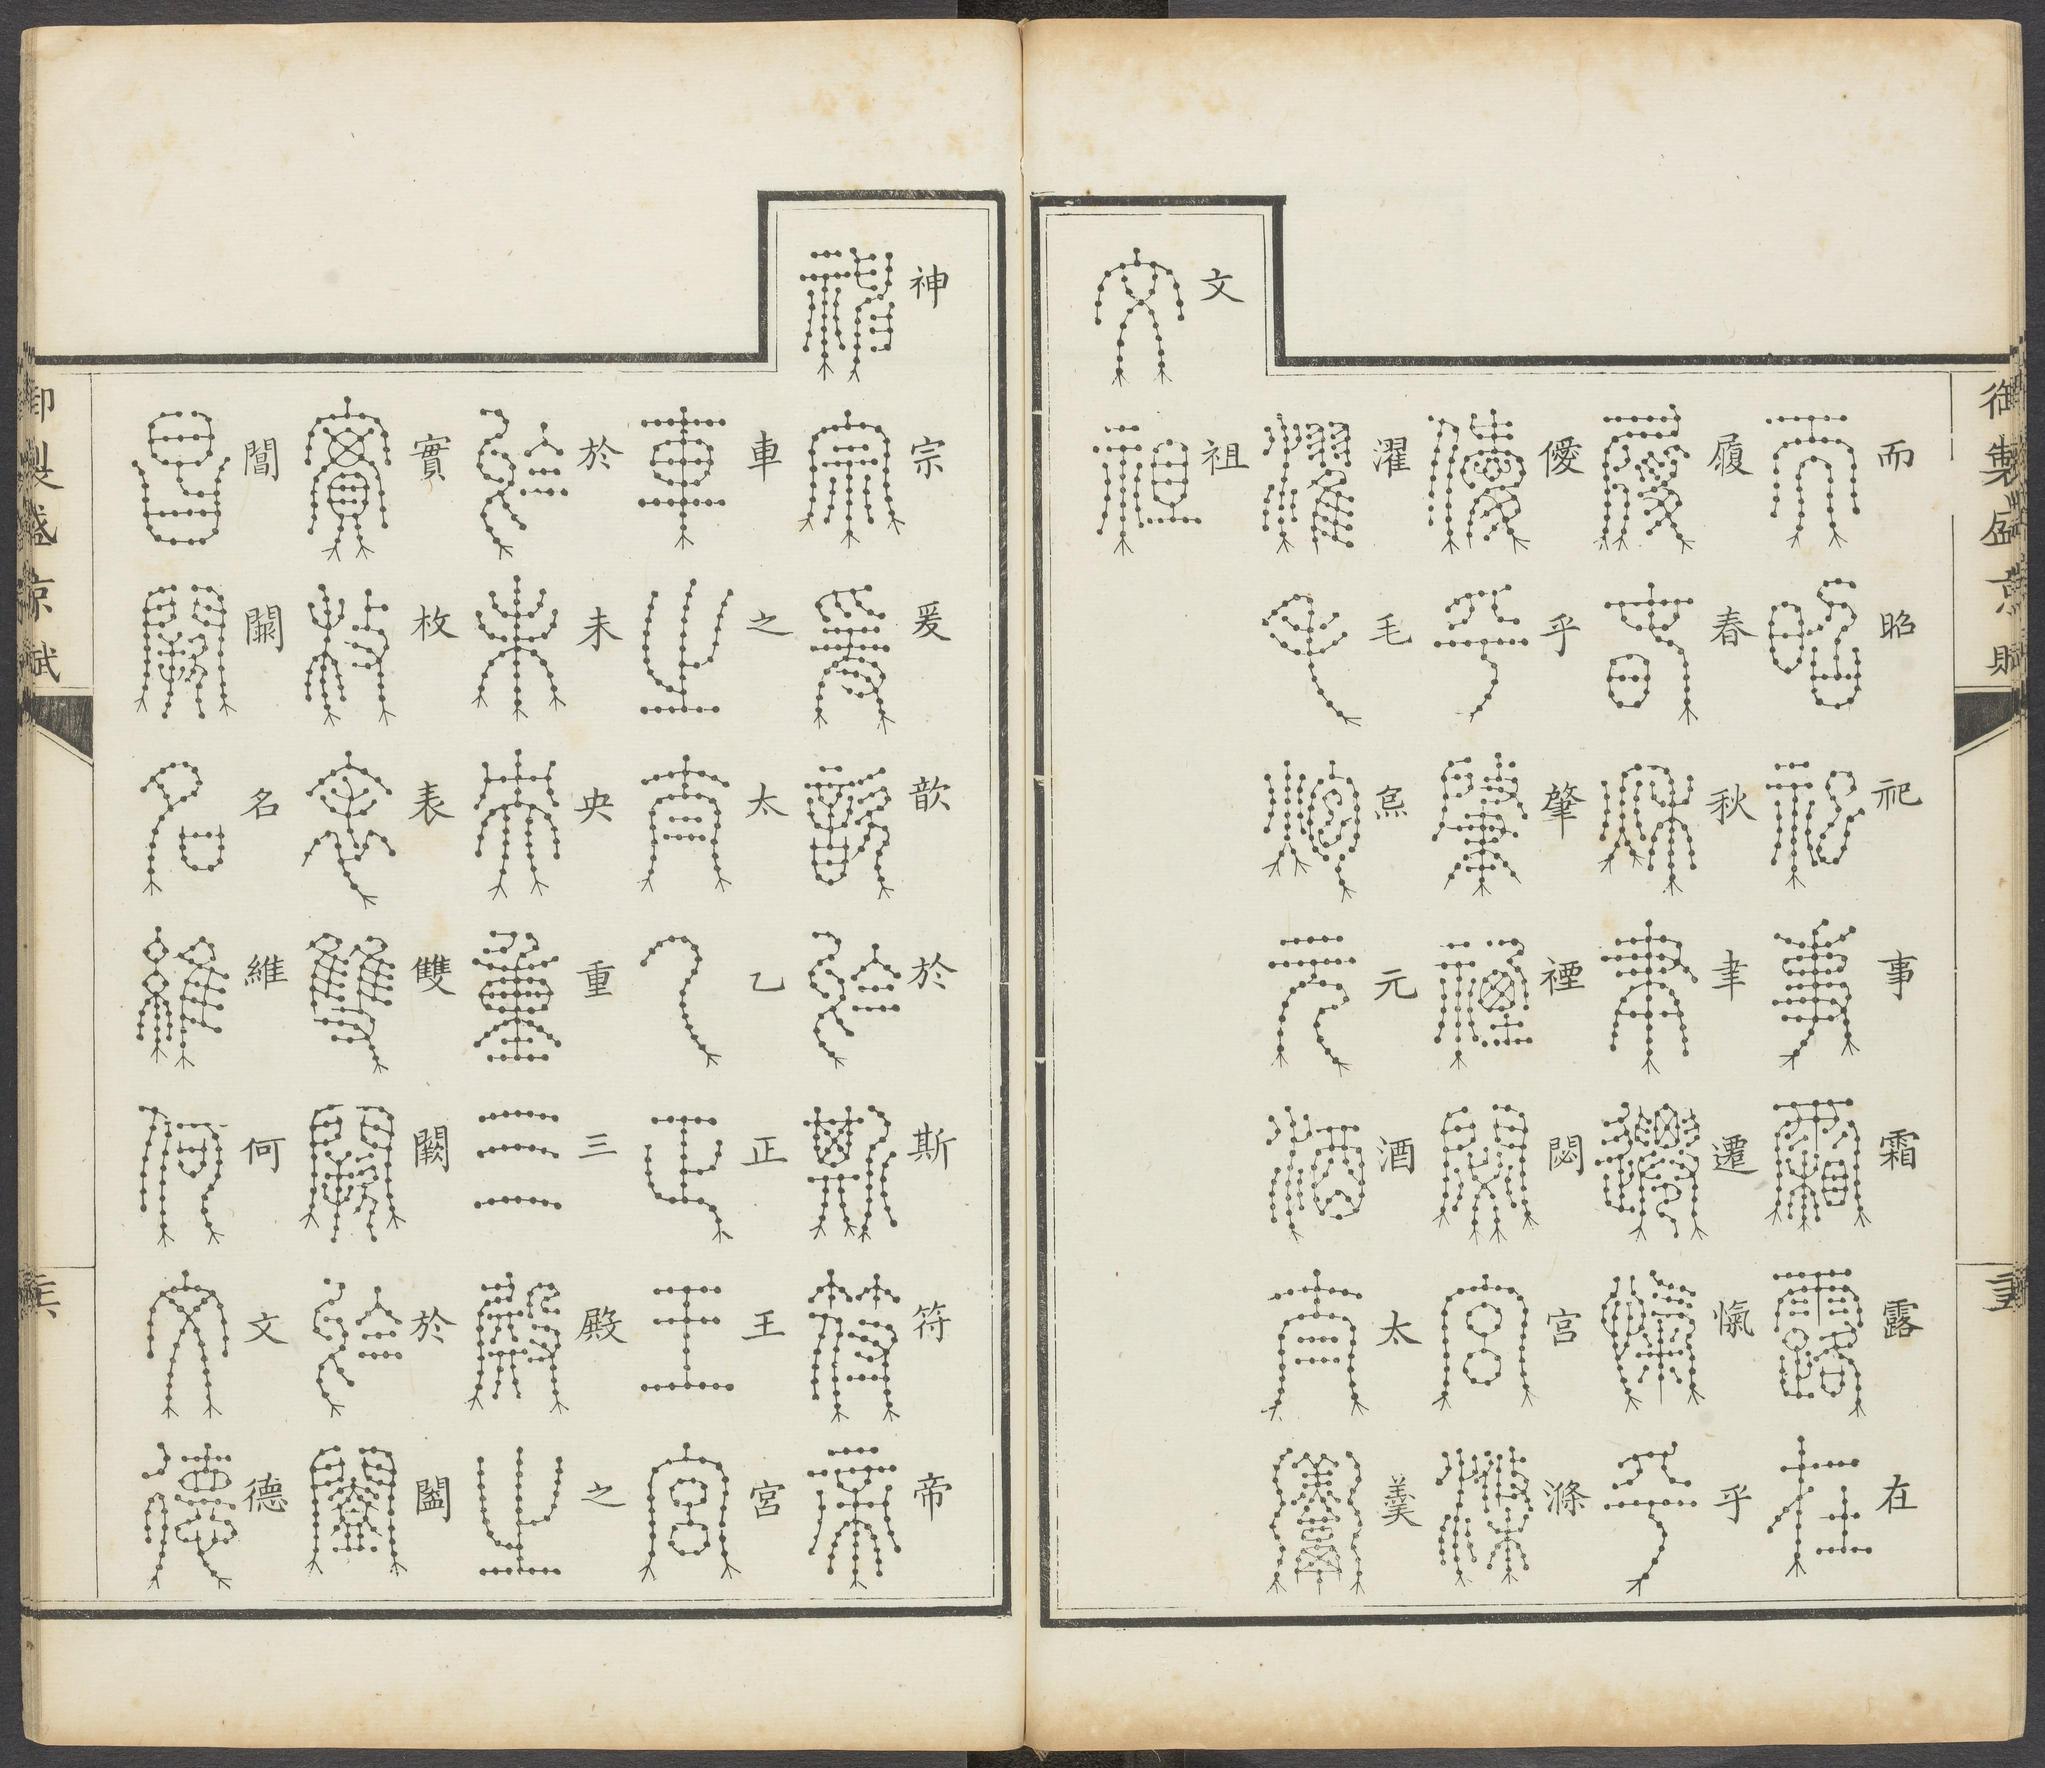 御製盛京賦
而昭祀事霜露在
履春秋聿遷愾乎
僾乎肇禋閟宮滌
濯毛炰元酒太羹
文祖
神宗爰歆於斯符帝
車之太乙正王宮
於未央重三殿之
實枚表雙闕於闔
閶闌名維何文德
御製盛京賦